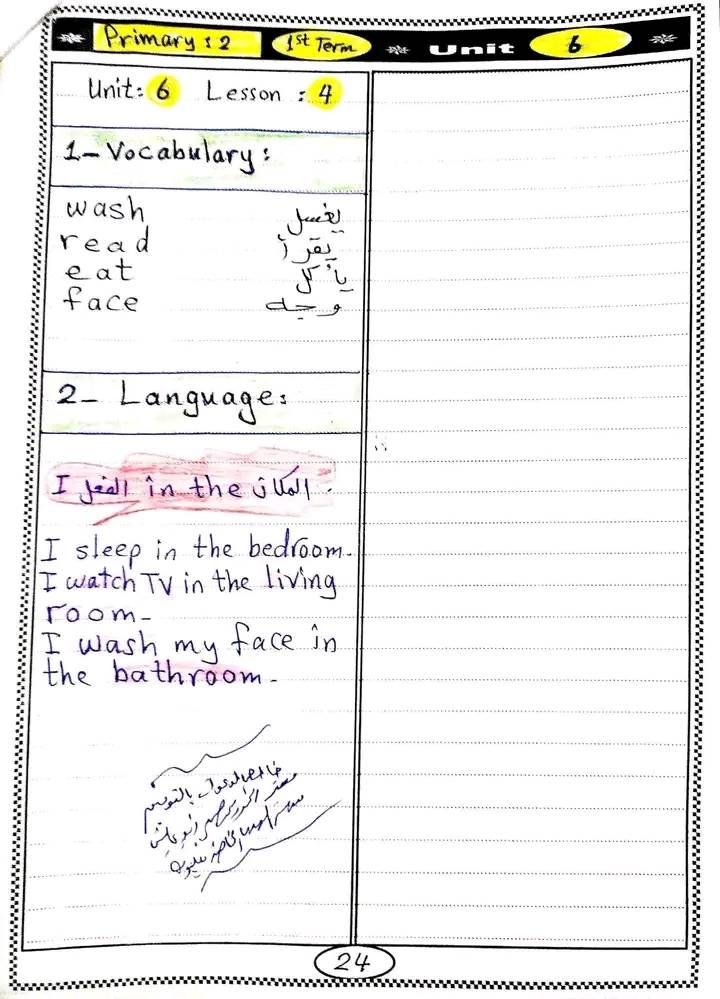 Primary : 2 1st Term Unit 6
Unit: 6 Lesson : 4
1- Vocabulary:
wash يغسل
read يقرأ
eat يأكل
face وجه
2- Language:
I الفعل in the المكان.
I sleep in the bedroom-
I watch TV in the living
room-
I wash my face in
the bathroom-
خالص الدعوات بالتوفيق
24